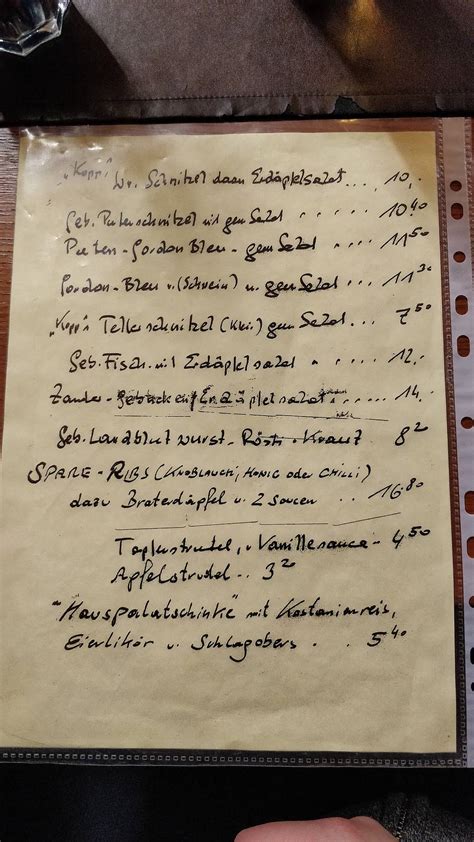 "Kopp" Wr. Schnitzel dazu Erdäpfelsalat... 10,-
Geb. Putenschnitzel mit gem Salat ..... 10.40
Puten-Gordon Bleu - gem Salat ... 11.50
Gordon-Bleu v. (Schwein) u. gem Salat ... 11.30
"Kopp's Tellerschnitzel (klei.) gem Salat... 7.50
Geb. Fisch mit Erdäpfelsalat .... 12,-
Zander - gebacken Erdäpfelsalat .... 14,-
Geb. Landblutwurst - Rösti - Kraut 8.20
SPARE-RIBS (KNOBLAUCH, HONIG oder CHILLI)
dazu Braterdäpfel u. 2 Saucen ... 16.80
Topfenstrudel, u. Vanillesauce - 4.50
Apfelstrudel .. 3.20
"Hauspalatschinke" mit Kastanienreis,
Eierlikör u. Schlagobers . . 5.40